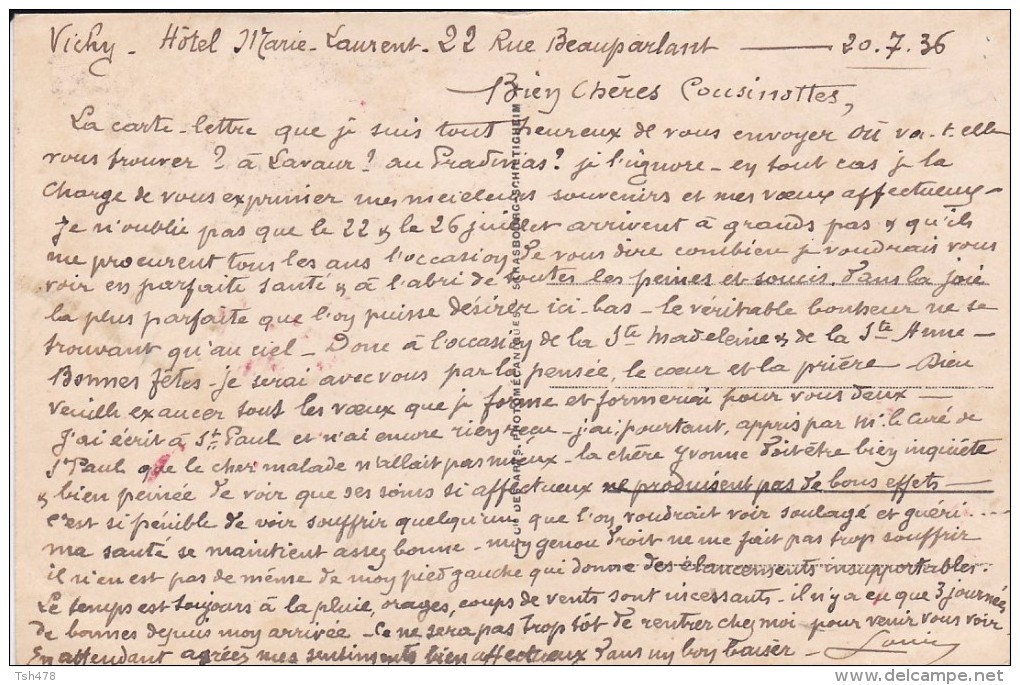 Vichy - Hôtel Marie-Laurent - 22 Rue Beauparlant — 20.7.36
Bien Chères Cousinottes,
La carte-lettre que je suis tout heureux de vous envoyer où va-t-elle
vous trouver ? à Lavaur ? au Pradinas ? je l'ignore - en tout cas je la
charge de vous exprimer mes meilleurs souvenirs et mes vœux affectueux -
Je n'oublie pas que le 22 & le 26 juillet arrivent à grands pas & qu'ils
me procurent tous les ans l'occasion de vous dire combien je voudrais vous
voir en parfaite santé & à l'abri de toutes les peines et soucis. Dans la joie
la plus parfaite que l'on puisse désirer ici-bas - le véritable bonheur ne se
trouvant qu'au ciel - Donc à l'occasion de la Ste Madeleine & de la Ste Anne -
Bonnes fêtes - je serai avec vous par la pensée, le cœur et la prière - Dieu
veuille exaucer tout les vœux que je forme et formerai pour vous deux -
J'ai écrit à St Paul et n'ai encore rien reçu - j'ai pourtant, appris par M. le Curé de
St Paul que le cher malade n'allait pas mieux - la chère Yvonne doit être bien inquiète
& bien peinée de voir que ses soins si affectueux ne produisent pas de bons effets -
c'est si pénible de voir souffrir quelqu'un que l'on voudrait voir soulagé et guéri ....
ma santé se maintient assez bonne - mon genou droit ne me fait pas trop souffrir
il n'en est pas de même de mon pied gauche qui donne des élancements insupportables.
Le temps est toujours à la pluie, orages, coups de vents sont incessants - il n'y a eu que 3 journées
de bonnes depuis mon arrivée - Ce ne sera pas trop tôt de rentrer chez moi - pour venir vous voir.
En attendant agréez mes sentiments bien affectueux dans un bon baiser - Louis
Cie DES ARTS PHOTOMÉCANIQUES STRASBOURG-SCHILTIGHEIM
Tsh478
delcampe.net